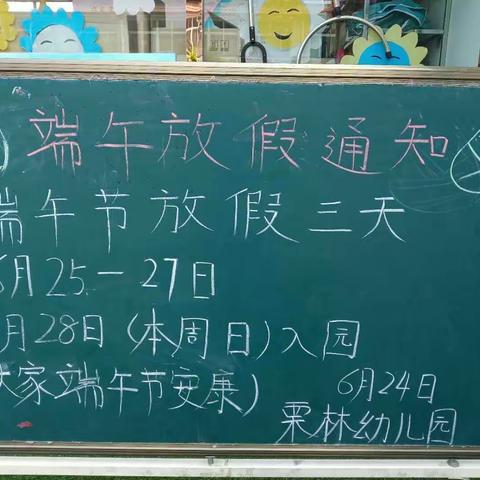 端午放假通知
端午节放假三天
6月25-27日
月28日(本周日)入园
大家端午节安康)
6月24日
栗林幼儿园